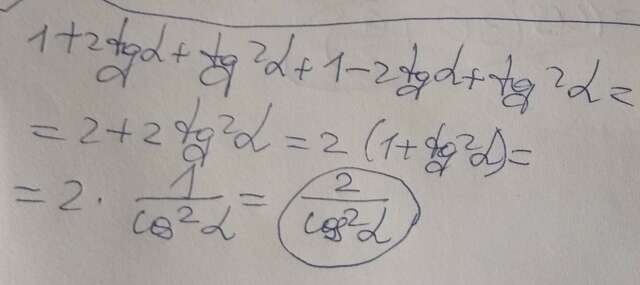 1+2tgα+tg²α+1-2tgα+tg²α=
=2+2tg²α=2(1+tg²α)=
=2·1/cos²α=2/cos²α